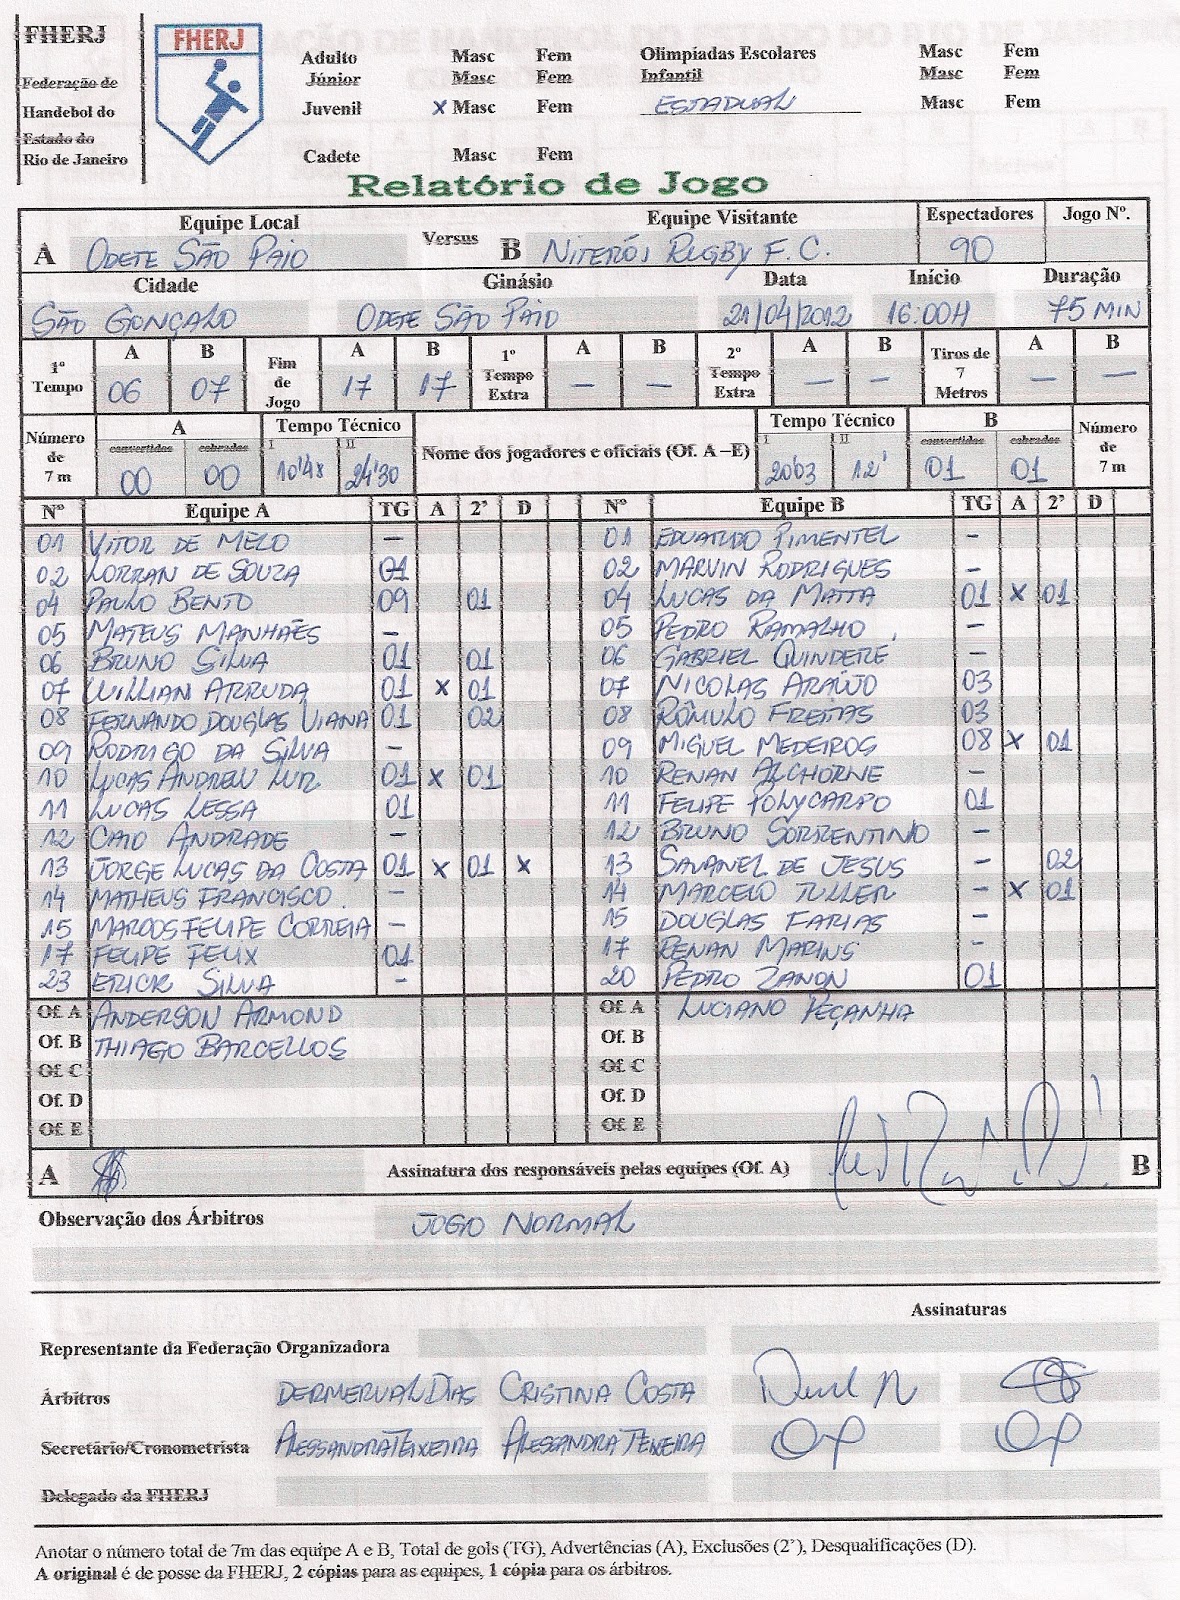 FHERJ
Federação de
Handebol do
Estado do
Rio de Janeiro
FHERJ
Adulto Masc Fem Olimpíadas Escolares Masc Fem
Júnior Masc Fem Infantil Masc Fem
Juvenil X Masc Fem ESTADUAL Masc Fem
Cadete Masc Fem
Relatório de Jogo
Equipe Local Versus Equipe Visitante Espectadores Jogo Nº.
A ODETE SÃO PAIO B NITERÓI RUGBY F.C. 90
Cidade Ginásio Data Início Duração
SÃO GONÇALO ODETE SÃO PAIO 21/04/2012 16:00H 75 MIN
1º Tempo A B Fim de Jogo A B 1º Tempo Extra A B 2º Tempo Extra A B Tiros de 7 Metros A B
06 07 17 17 — — — — — —
Número de 7 m A Tempo Técnico Nome dos jogadores e oficiais (Of. A –E) Tempo Técnico B Número de 7 m
convertidos cobrados I II I II convertidos cobrados
00 00 10'48 24'30 20'03 12' 01 01
Nº Equipe A TG A 2' D Nº Equipe B TG A 2' D
01 VITOR DE MELO - 01 EDUARDO PIMENTEL -
02 LORRAN DE SOUZA 01 02 MARVIN RODRIGUES -
04 PAULO BENTO 09 01 04 LUCAS DA MATTA 01 X 01
05 MATEUS MANHÃES - 05 PEDRO RAMALHO -
06 BRUNO SILVA 01 01 06 GABRIEL QUINDERÉ -
07 WILLIAN ARRUDA 01 X 01 07 NICOLAS ARAÚJO 03
08 FERNANDO DOUGLAS VIANA 01 02 08 RÔMULO FREITAS 03
09 RODRIGO DA SILVA - 09 MIGUEL MEDEIROS 08 X 01
10 LUCAS ANDREW LUIZ 01 X 01 10 RENAN ALCHORNE -
11 LUCAS LESSA 01 11 FELIPE POLYCARPO 01
12 CAIO ANDRADE - 12 BRUNO SORRENTINO -
13 JORGE LUCAS DA COSTA 01 X 01 X 13 SAVANEL DE JESUS - 02
14 MATHEUS FRANCISCO - 14 MARCELO TULLER - X 01
15 MARCOS FELIPE CORREIA - 15 DOUGLAS FARIAS -
17 FELIPE FELIX 01 17 RENAN MARINS -
23 ERICK SILVA - 20 PEDRO ZANON 01
Of. A ANDERSON ARMOND Of. A LUCIANO PEÇANHA
Of. B THIAGO BARCELLOS Of. B
Of. C Of. C
Of. D Of. D
Of. E Of. E
A Assinatura dos responsáveis pelas equipes (Of. A) B
Observação dos Árbitros JOGO NORMAL
Assinaturas
Representante da Federação Organizadora
Árbitros DERMERVAL DIAS CRISTINA COSTA
Secretário/Cronometrista ALESSANDRA TEIXEIRA ALESSANDRA TEIXEIRA
Delegado da FHERJ
Anotar o número total de 7m das equipe A e B, Total de gols (TG), Advertências (A), Exclusões (2'), Desqualificações (D).
A original é de posse da FHERJ, 2 cópias para as equipes, 1 cópia para os árbitros.